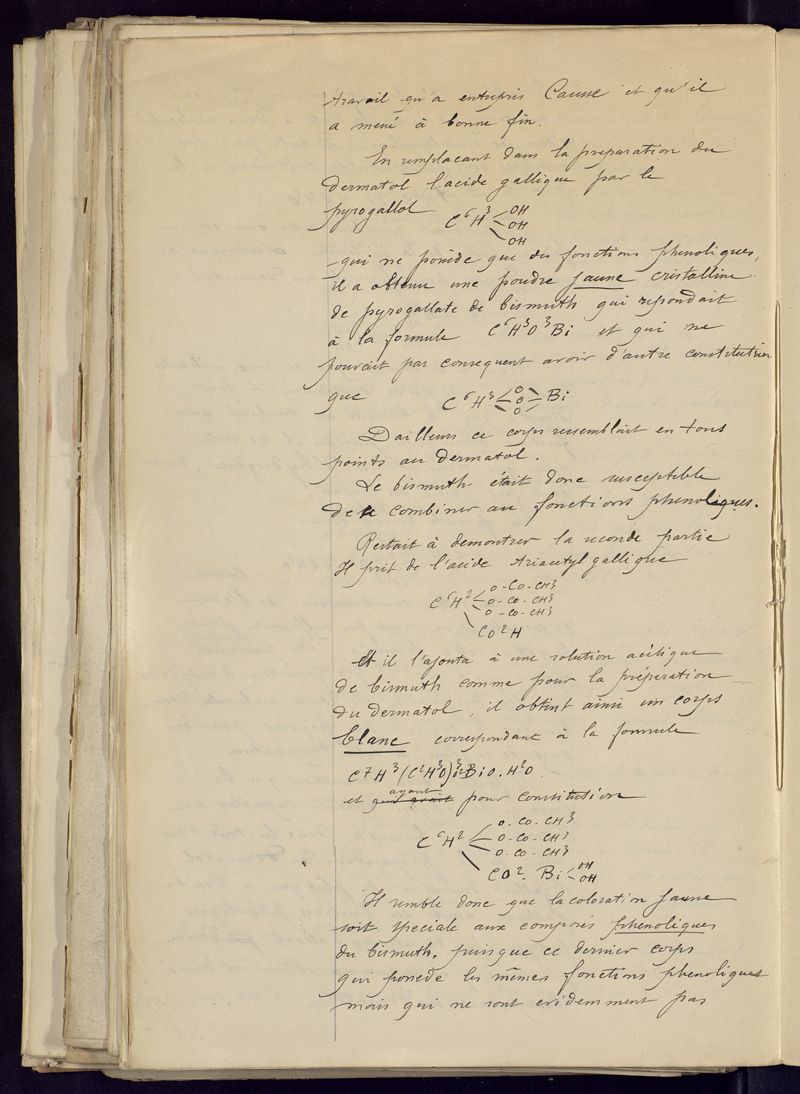 travail qu'a entrepris Causse et qu'il
a mené à bonne fin.
En remplacant dans la preparation du
dermatol l'acide gallique par le
pyrogallol C⁶H³ OH
OH
OH
qui ne possède que des fonctions phenoliques,
il a obtenu une poudre jaune cristalline
de pyrogallate de bismuth qui repondait
à la formule C⁶H³O³Bi et qui ne
pouvait par consequent avoir d'autre constitution
que C⁶H³ O O O Bi
Dailleurs ce corps ressemblait en tous
points au dermatol.
Le bismuth était donc susceptible
de se combiner au fonctions phenoliques.
Restait à demontrer la seconde partie
Il prit de l'acide triacetyl gallique
C⁶H² O-CO-CH³
O-CO-CH³
O-CO-CH³
CO²H
Et il l'ajouta à une solution acétique
de bismuth comme pour la préparation
du dermatol, il obtint ainsi un corps
blanc correspondant à la formule
C⁷H³(C²H³O)³ BiO.H²O.
et ayant pour constitution
C⁶H² O-CO-CH³
O-CO-CH³
O-CO-CH³
CO². Bi OH
OH
Il semble donc que la coloration jaune
soit speciale aux composés phenoliques
du bismuth, puisque ce dernier corps
qui possede les mêmes fonctions phenoliques
mais qui ne sont evidemment pas